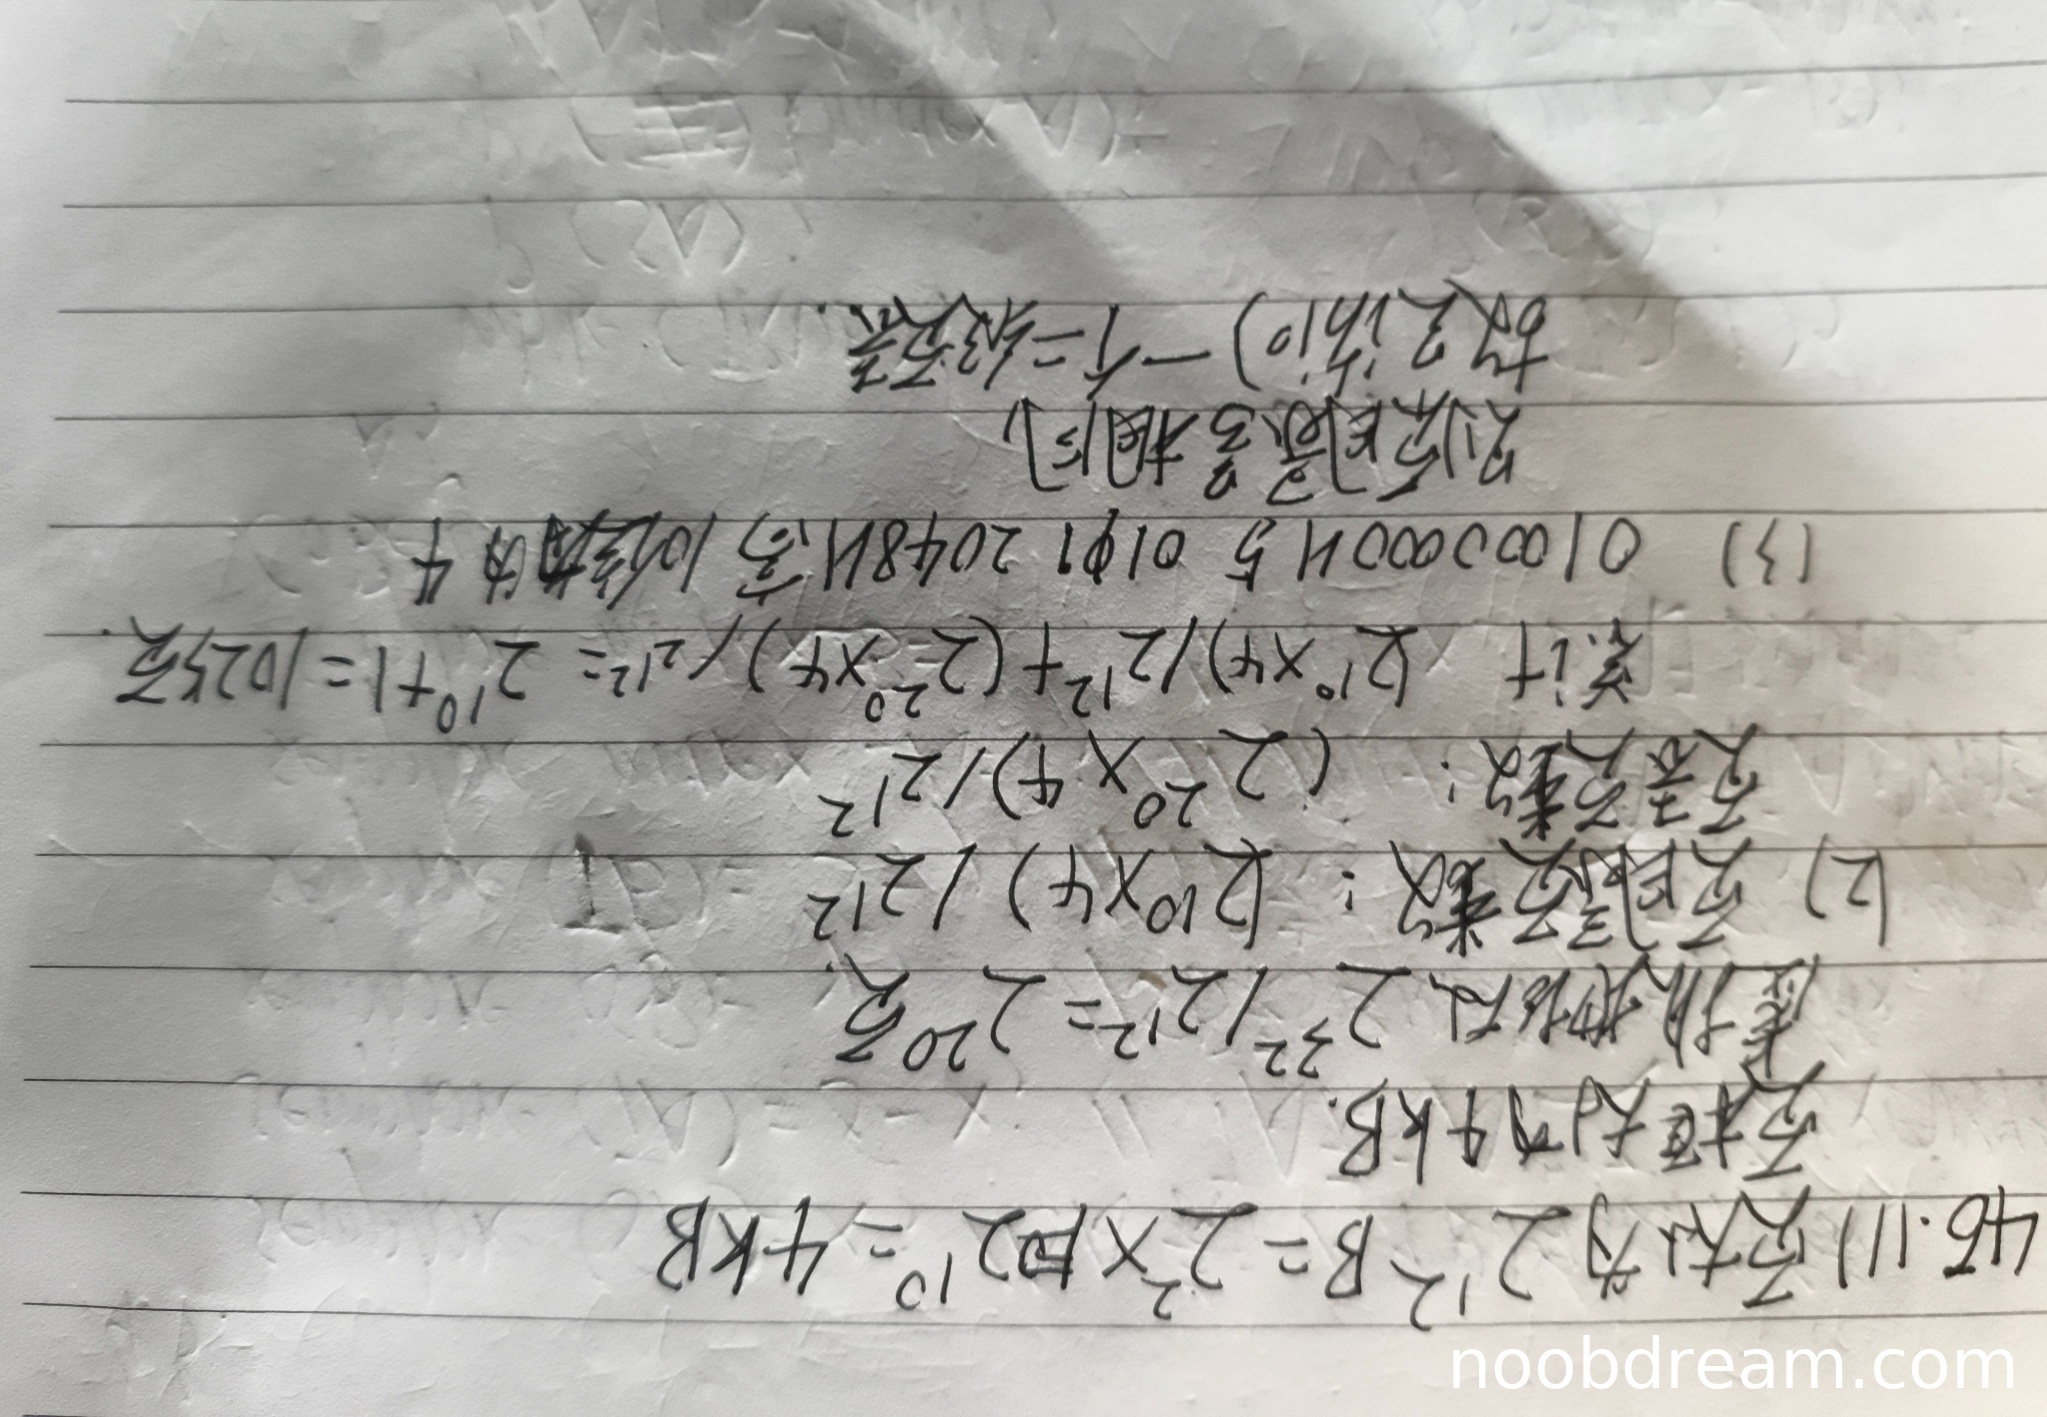 45.(1) 页大小为 2¹²B = 2² × 2¹⁰ = 4KB
页框大小为4KB.
虚拟地址 2³² / 2¹² = 2²⁰页.
(2) 页目录页数: (2¹⁰×4) / 2¹²
页表页数: (2²⁰×4) / 2¹²
共计 (2¹⁰×4)/2¹² + (2²⁰×4)/2¹² = 2¹⁰+1 = 1025页.
(3) 01000000H 与 01 1 2048H 高10位均为4
则页目录号相同
故之访问一个二级页表.
noobdream.com